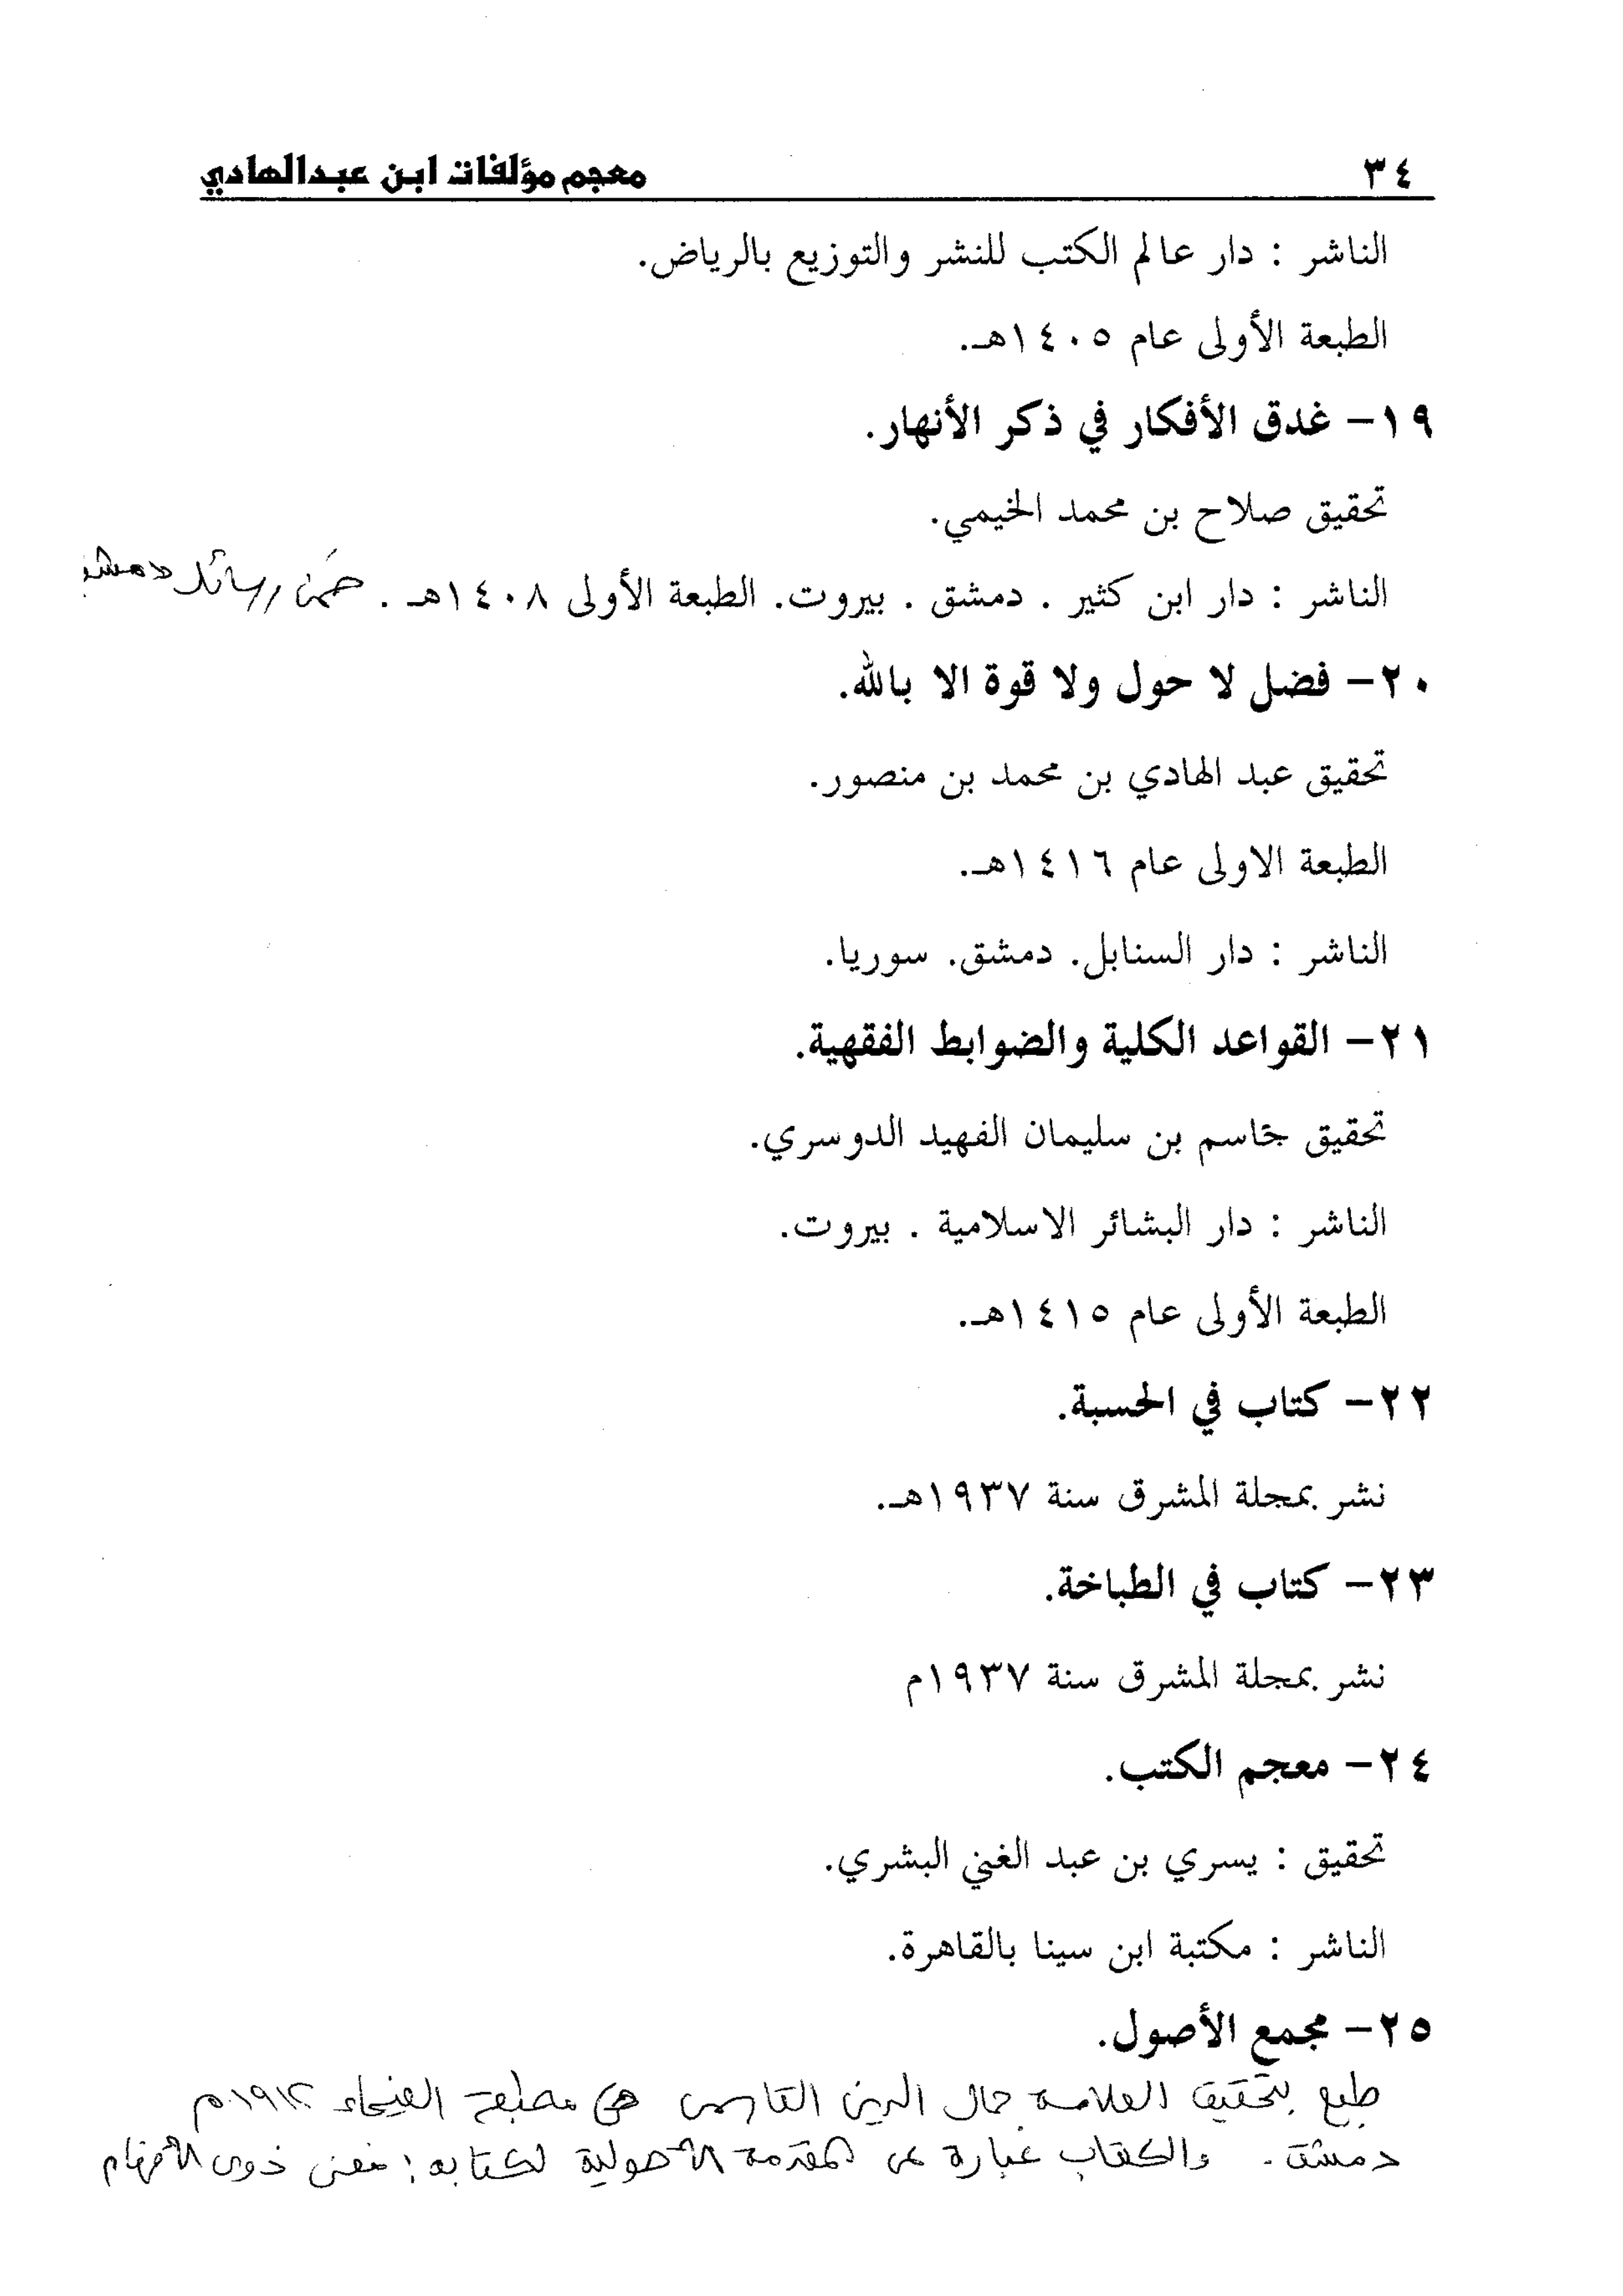 ٣٤ معجم مؤلفات ابن عبدالهادي
الناشر : دار عالم الكتب للنشر والتوزيع بالرياض.
الطبعة الأولى عام ١٤٠٥هـ.
١٩- غدق الأفكار في ذكر الأنهار.
تحقيق صلاح بن محمد الخيمي.
الناشر : دار ابن كثير . دمشق . بيروت. الطبعة الأولى ١٤٠٨هـ . ضمن رسائل دمشقية
٢٠- فضل لا حول ولا قوة الا بالله.
تحقيق عبد الهادي بن محمد بن منصور.
الطبعة الاولى عام ١٤١٦هـ.
الناشر : دار السنابل. دمشق. سوريا.
٢١- القواعد الكلية والضوابط الفقهية.
تحقيق جاسم بن سليمان الفهيد الدوسري.
الناشر : دار البشائر الاسلامية . بيروت.
الطبعة الأولى عام ١٤١٥هـ.
٢٢- كتاب في الحسبة.
نشر بمجلة المشرق سنة ١٩٣٧هـ.
٢٣- كتاب في الطباخة.
نشر بمجلة المشرق سنة ١٩٣٧م
٢٤- معجم الكتب.
تحقيق : يسري بن عبد الغني البشري.
الناشر : مكتبة ابن سينا بالقاهرة.
٢٥- مجمع الأصول.
طبع بتحقيق العلامة جمال الدين القاسمي في مطبعة الفيحاء ١٩١٢م
دمشق . والكتاب عبارة عن المقدمة الأصولية لكتابه : مغني ذوي الأفهام